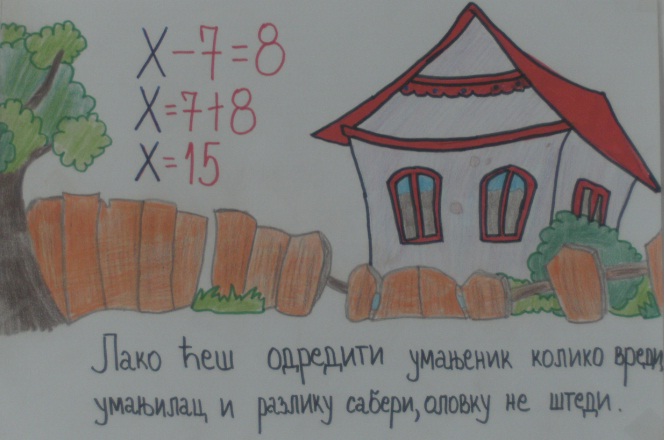 X-7=8
X=7+8
X=15
Лако ћеш одредити умањеник колико вреди,
умањилац и разлику сабери, оловку не штеди.